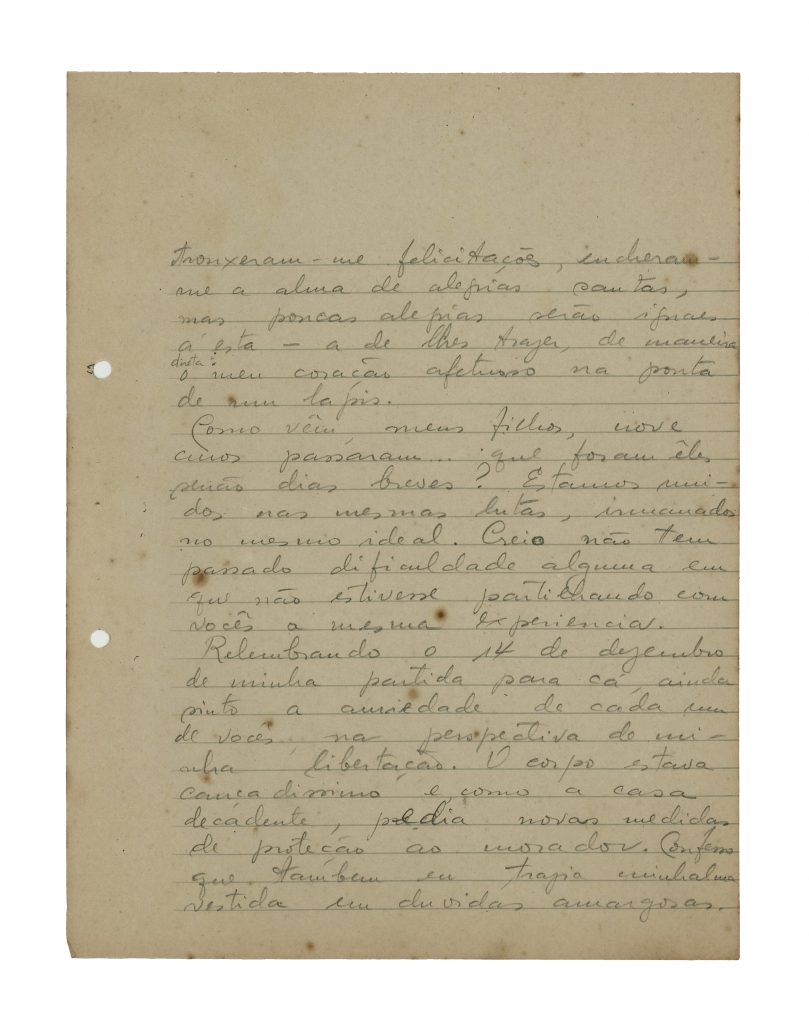 trouxeram-me felicitações, encheram-
me a alma de alegrias santas,
mas poucas alegrias serão iguaes
á esta — a de lhes trazer, de maneira
direta:
o meu coração afetuoso na ponta
de um lapis.
Como vêm, meus filhos, nove
anos passáram... que foram êles
senão dias breves? Estamos uni-
dos nas mesmas lutas, irmanados
no mesmo ideal. Creio não tem
passado dificuldade alguma em
que não estivesse partilhando com
vocês a mesma experiencia.
Relembrando o 14 de dezembro
de minha partida para cá, ainda
sinto a anciedade de cada um
de vocês, na perspectiva de mi-
nha libertação. O corpo estava
cançadissimo e, como a casa
decadente, pedia novas medidas
de proteção ao morador. Confesso
que tambem eu trazia minhalma
vestida em duvidas amargosas.